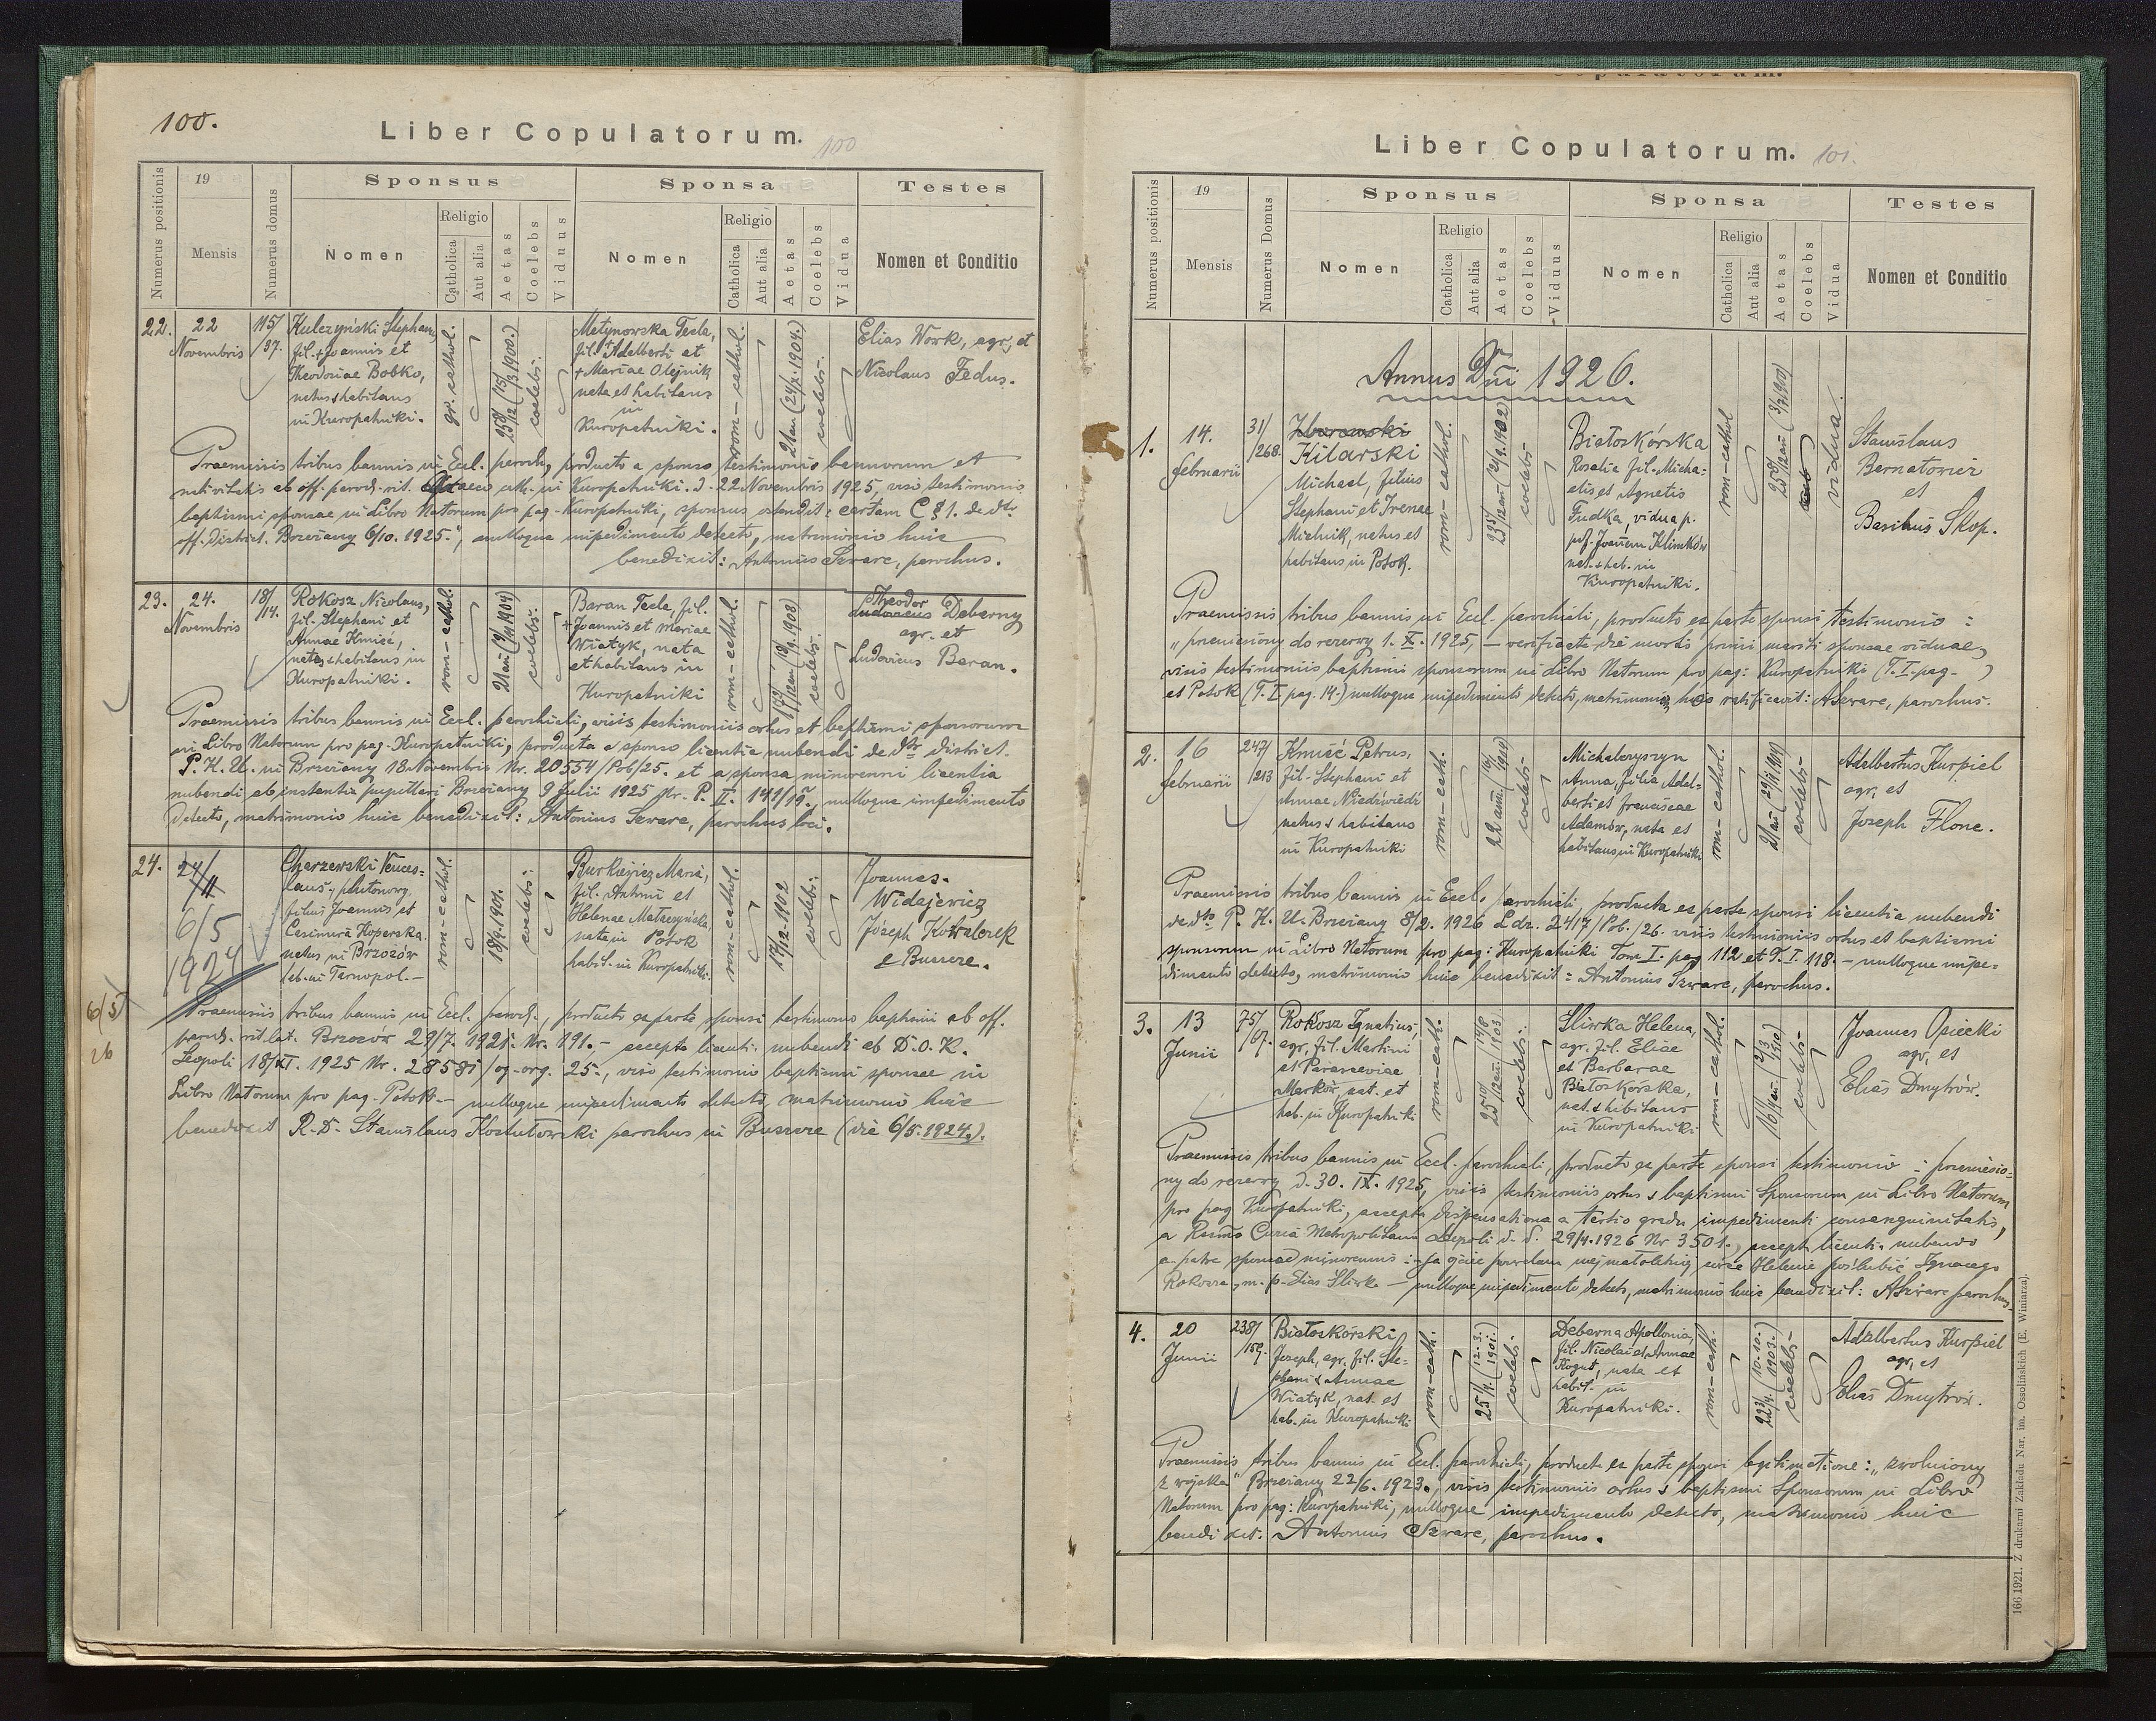 100.
Liber Copulatorum.
100
Numerus positionis
19
Mensis
Numerus domus
Sponsus
Nomen
Religio
Catholica
Aut alia
Aetas
Coelebs
Viduus
Sponsa
Nomen
Religio
Catholica
Aut alia
Aetas
Coelebs
Vidua
Testes
Nomen et Conditio
22.
22
Novembris
115/
37.
Kulczyński Stephan,
fil. + Joannis et
Theodosiae Bobko,
natus & habitans
in Kuropatniki.
gr. cathol.
coelebs.
fil. + Adalberti et
+ Mariae Olejnik
nata et habitans
in
Kuropatniki.
rom-cathol.
coelebs.
Elias Work, agr. et
Nicolaus Fedus.
Praemissis tribus bannis in Eccl. paroch, producto a sponso testimonio bannorum et
nativitatis ab off. paroch. rit. cath. in Kuropatniki. d. 22 Novembris 1925, viso testimonio
baptismi sponsae in Libro Natorum pro pag. Kuropatniki, sponsus ostendit: cartam C § 1. de dto
off. District. Brzeżany 6/10. 1925., nulloque impedimento detecto, matrimonio huic
benedixit: Antonius Szwarc, parochus.
23.
24.
Novembris
18/
14.
Rokosz Nicolaus,
fil. Stephani et
Annae Kmieć,
natus & habitans in
Kuropatniki.
rom-cathol.
coelebs.
Baran Tecla, fil.
+ Joannis et Mariae
Wiatyk, nata
et habitans in
Kuropatniki
rom-cathol.
coelebs.
Theodor
Ludovicus Deberny
agr. et
Ludovicus Baran.
Praemissis tribus bannis in Eccl. parochiali, visis testimoniis ortus et baptismi sponsorum
in Libro Natorum pro pag. Kuropatniki, producta a sponso licentia nubendi de dto district.
P. K. U. in Brzeżany 18 Novembris Nr. 20554/Pob/25. et a sponsa minorenni licentia
nubendi ab instantia pupillari Brzeżany 9 Julii 1925 Nr. P. II. nulloque impedimento
detecto, matrimonio huic benedixit: Antonius Szwarc, parochus loci.
24.
24/
11
6/5
1924
6/5
26
Charzewski Vences-
laus, plutonowy
filius Joannis et
Casimira Koperska
natus in Brzozów
hab. in Tarnopol.-
rom-cathol.
18/9.1901.
coelebs.
fil. Antonii et
nata in Potok
habit. in Kuropatniki.
rom-cathol.
17/12.1902
coelebs.
Joannes
Widajewicz
Józeph Kowalczek
e Buszcze.
Praemissis tribus bannis in Eccl. paroch., producto ex parte sponsi testimonio baptismi ab off.
paroch. rit. lat. Brzozów 29/7. 1925. Nr. 191.- accepta licentia nubendi ab D.O.K.
Leopoli 18/XI. 1925 Nr. 28581/og-org. 25., viso testimonio baptismi sponsae in
Libro Natorum pro pag. Potok - nulloque impedimento detecto, matrimonio huic
benedixit R. D. Stanislaus parochus in Buszcze (die 6/5.1924.).
Liber Copulatorum.
101.
Numerus positionis
19
Mensis
Numerus Domus
Sponsus
Nomen
Religio
Catholica
Aut alia
Aetas
Coelebs
Viduus
Sponsa
Nomen
Religio
Catholica
Aut alia
Aetas
Coelebs
Vidua
Testes
Nomen et Conditio
Annus Dni 1926.
1.
14.
februarii
31/
268.
Kitarski
Michael, filius
Stephani et Irenae
Mielnik, natus et
habitans in Potok.
rom-cathol.
coelebs
Białoskórska
Rosalia fil. Micha-
elis et Agnetis
Fudka, vidua p.
def. Joannem Klimków
nat. & hab. in
Kuropatniki.
rom-cathol
vidua.
Stanislaus
Bernatowicz
et
Basilius Skop.
Praemissis tribus bannis in Eccl. parochiali, producto ex parte sponsi testimonio:
„przeniesiony do rezerwy 1. X. 1925, - verificata die mortis primi mariti sponsae viduae,
visis testimoniis baptismi sponsorum in Libro Natorum pro pag: Kuropatniki (T. I. pag- )
et Potok (T. I. pag. 14.) nulloque impedimento detecto, matrimonio huic ratificavit: A Szwarc, parochus.
2.
16
februarii
247/
213
Kmieć Petrus,
fil. Stephani et
Annae Niedźwiedź
natus & habitans
in Kuropatniki
rom-cath.
coelebs
Michalczyszyn
Anna, filia Adal-
berti et franciscae
Adamów, nata et
habitans in Kuropatniki
rom-cathol.
coelebs
Adalbertus Kurpiel
agr. et
Joseph Flonc.
Praemissis tribus bannis in Eccl. parochiali, producta ex parte sponsi licentia nubendi
de dto P. K. U. Brzeżany 8/2. 1926 Ldz. 2417/Pob./26. visis testimoniis ortus et baptismi
sponsorum in Libro Natorum pro pag: Kuropatniki Tom I. pag 112 et T. I. 118. - nulloque impe-
dimento detecto, matrimonio huic benedixit: Antonius Szwarc, parochus.
3.
13
Junii
75/
67.
Rokosz Ignatius,
agr. fil. Martini
et Parasceviae
Markow, nat. et
hab. in Kuropatniki
rom-cath.
coelebs.
Sliwka Helena,
agr. fil. Eliae
et Barbarae
Białoskórska,
nat. & habitans
in Kuropatniki.
rom-cathol.
coelebs
Joannes Osiecki
agr. et
Elias Dmytrów.
Praemissis tribus bannis in Eccl. parochiali, producto ex parte sponsi testimonio: przeniesio-
ny do rezerwy d. 30. IX. 1925, visis testimoniis ortus & baptismi Sponsorum in Libro Natorum
pro pag Kuropatniki, accepta dispensatione a tertio gradu impedimenti consanguinitatis,
a Rssma Curia Metropolitana Leopoli d. d. 29/4.1926 Nr 3501., accepta licentia nubendi
a patre sponsae minorennis: - Ja ojciec pozwalam mej małoletniej córce Helenie poślubić Ignacego
Rokosza, m. p. Elias Sliwka - nulloque impedimento detecto, matrimonio huic benedixit: A Szwarc parochus.
4.
20
Junii
238/
159.
Białoskórski
Joseph, agr. fil. Ste-
phani & Annae
Wiatyk, nat. et
hab. in Kuropatniki
rom-cath.
coelebs.
Deberna Apollonia,
fil. Nicolai et Annae
Rogut, nata et
habit. in
Kuropatniki.
rom-cath.
coelebs
Adalbertus Kurpiel
agr. et
Elias Dmytrów.
Praemissis tribus bannis in Eccl. parochiali, producta ex parte sponsi legitimatione: „zwolniony
z wojska" Brzeżany 22/6. 1923., visis testimoniis ortus & baptismi Sponsorum in Libro
Natorum pro pag: Kuropatniki, nulloque impedimento detecto, matrimonio huic
benedixit: Antonius Szwarc, parochus.
166 1921. Z drukarni Zakładu Nar. im. Ossolińskich (E. Winiarza).